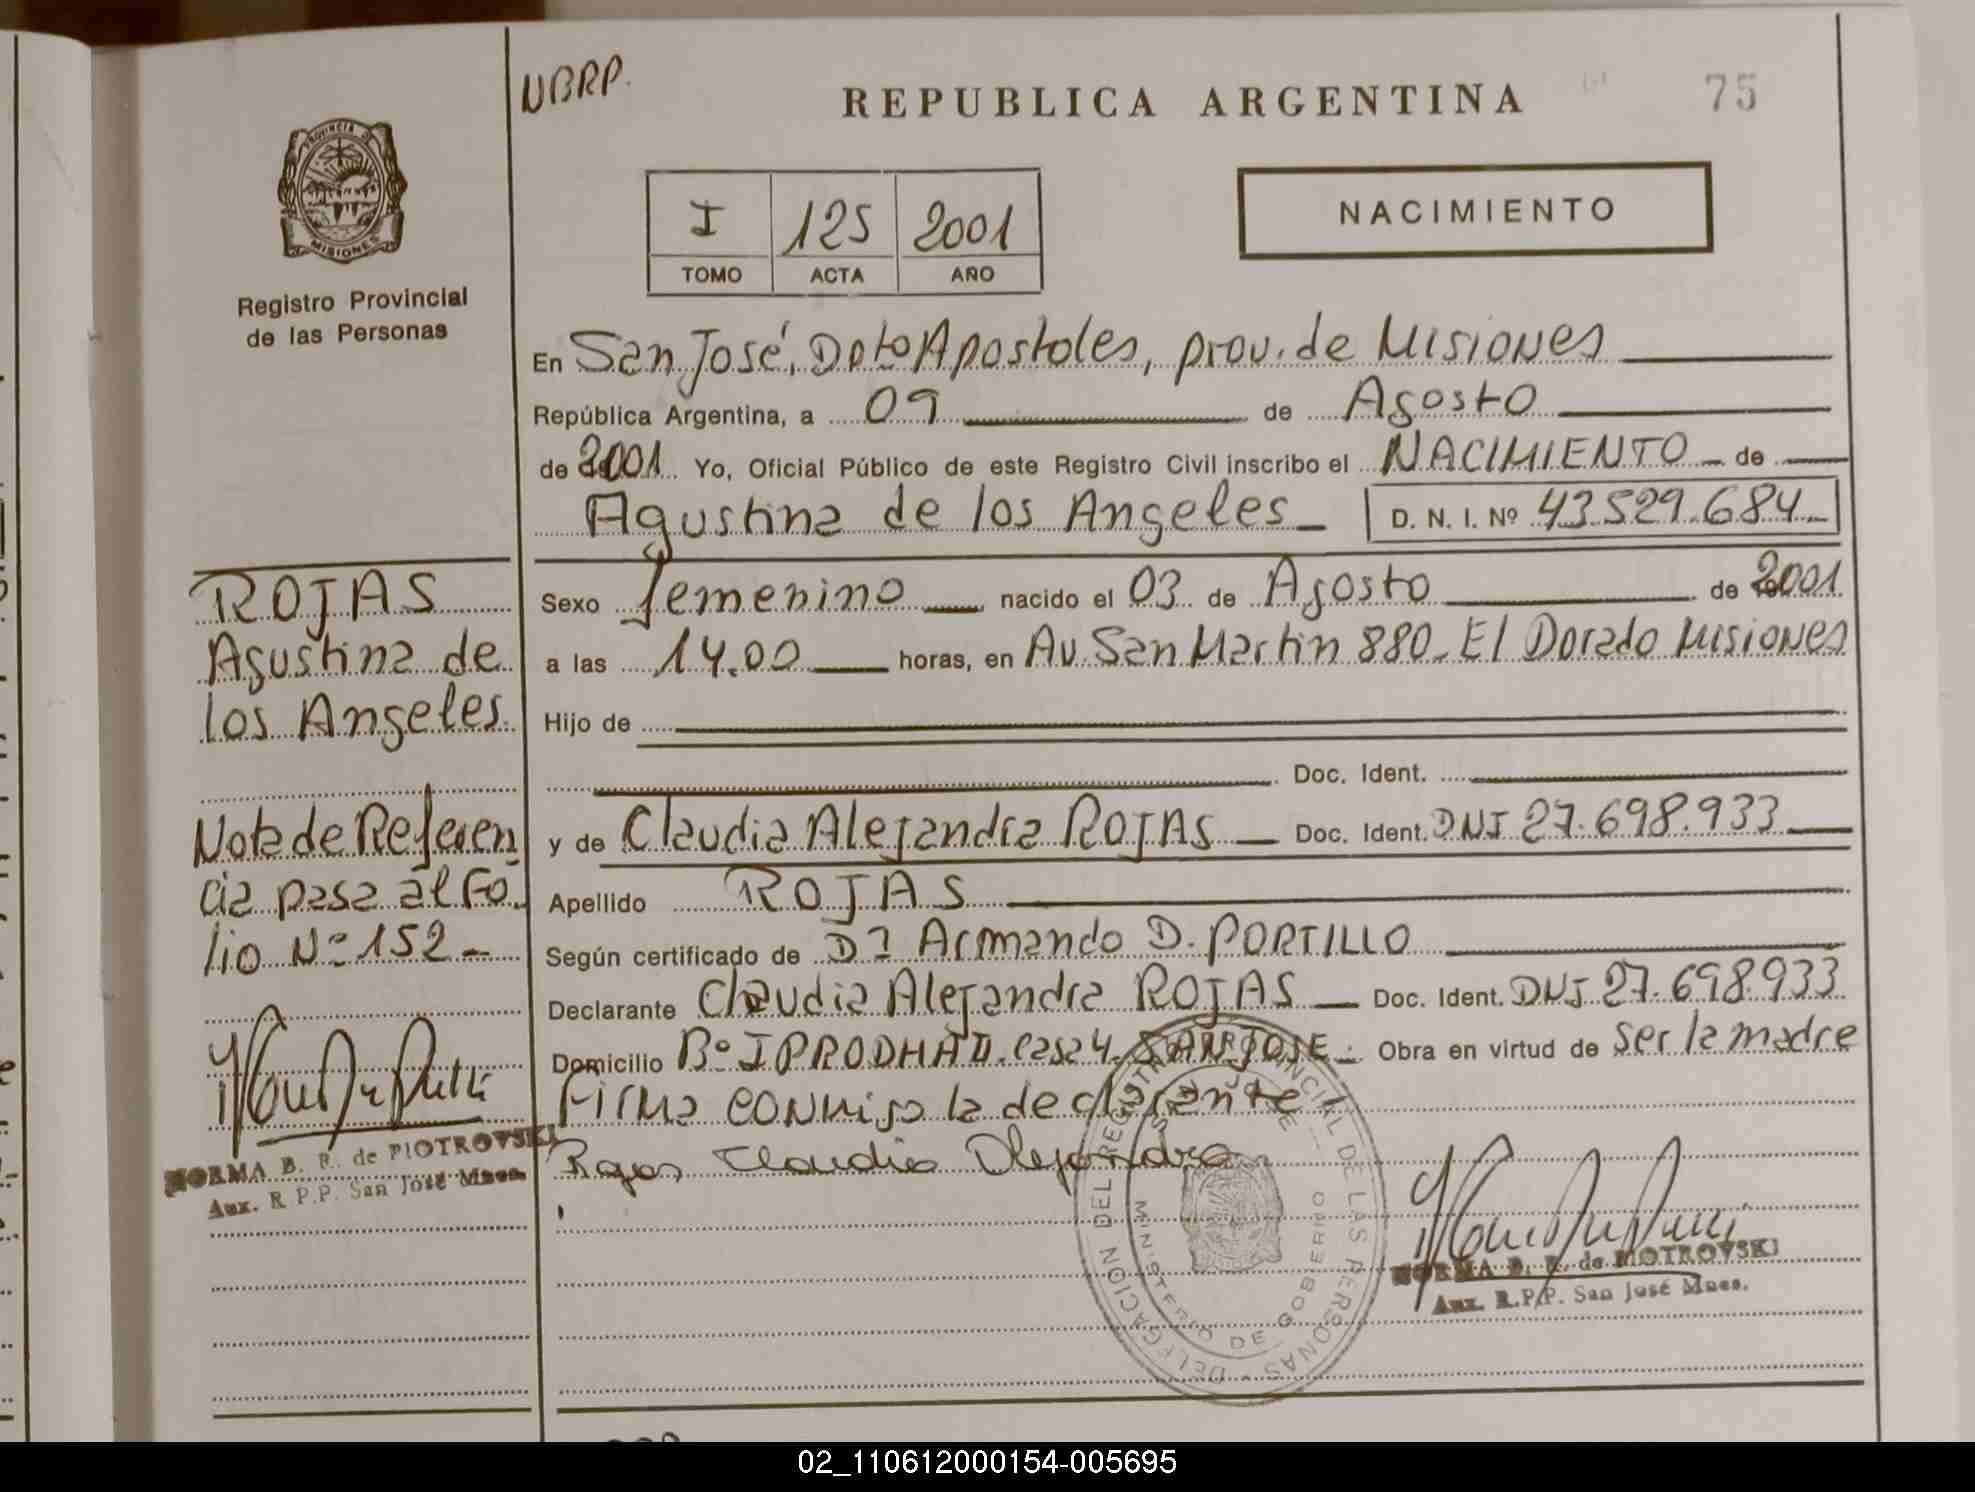 UBRP.
REPUBLICA ARGENTINA
75
PROVINCIA DE MISIONES
Registro Provincial
de las Personas
I 125 2001
TOMO ACTA AÑO
NACIMIENTO
En San José, Dpto Apostoles, prov. de Misiones
República Argentina, a 09 de Agosto
de 2001 Yo, Oficial Público de este Registro Civil inscribo el NACIMIENTO de
Agustina de los Angeles D. N. I. Nº 43.529.684
Sexo femenino nacido el 03 de Agosto de 2001
a las 14.00 horas, en Av. San Martin 880 El Dorado Misiones
Hijo de
Doc. Ident.
y de Claudia Alejandra ROJAS Doc. Ident. DNI 27.698.933
Apellido ROJAS
Según certificado de Dr Armando D. PORTILLO
Declarante Claudia Alejandra ROJAS Doc. Ident. DNI 27.698.933
Domicilio Bº IPRODHA II casa 4. SAN JOSE. Obra en virtud de ser la madre
Firma conmigo la declarante
Rojas Claudia Alejandra
ROJAS
Agustina de
los Angeles.
Nota de Referen
cia pasa al Fo
lio Nº 152
NORMA B. F. de PIOTROVSKI
Aux. R.P.P. San José Mnes.
DELEGACION DEL REGISTRO PROVINCIAL DE LAS PERSONAS
SAN JOSE
MINISTERIO DE GOBIERNO
NORMA B. F. de PIOTROVSKI
Aux. R.P.P. San José Mnes.
02_110612000154-005695